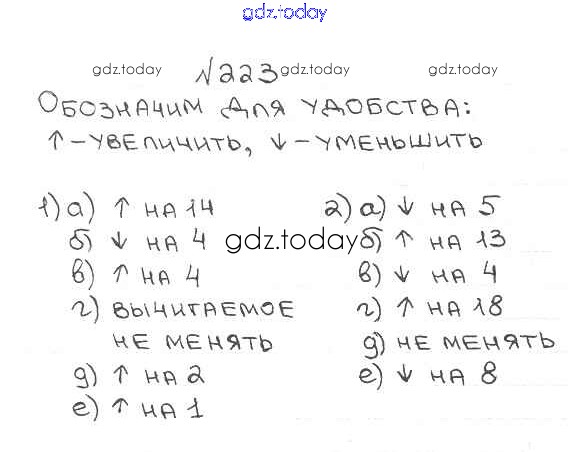 gdz.today
gdz.today №223 gdz.today gdz.today
Обозначим для удобства:
↑ - увеличить, ↓ - уменьшить
1) а) ↑ на 14
б) ↓ на 4
в) ↑ на 4
г) вычитаемое
не менять
д) ↑ на 2
е) ↑ на 1
gdz.today
2) а) ↓ на 5
б) ↑ на 13
в) ↓ на 4
г) ↑ на 18
д) не менять
е) ↓ на 8